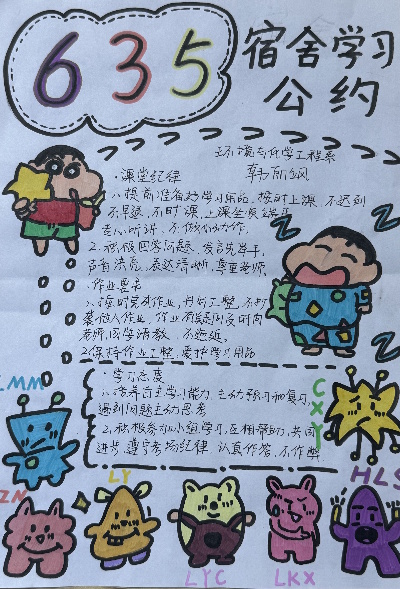 635
宿舍学习
公约
环境与化学工程系
·课堂纪律
1.提前准备好学习用品、按时上课、不迟到
不早退、不旷课、上课坐姿端正
专心听讲、不做小动作。
2.积极回答问题、发言举手,
声音洪亮、表达清晰、尊重老师
·作业要求
1.按时完成作业,书写工整、不抄
袭他人作业,作业有疑问及时向
老师、同学请教、不拖延。
2.保持作业工整、爱护学习用品
·学习态度
1.培养自主学习能力,主动预习和复习,
遇到问题主动思考
2.积极参加小组学习,互相帮助,共同
进步,遵守考场纪律,认真作答,不作弊
LMM
CXY
ZN
LY
LYC
LKX
HLS